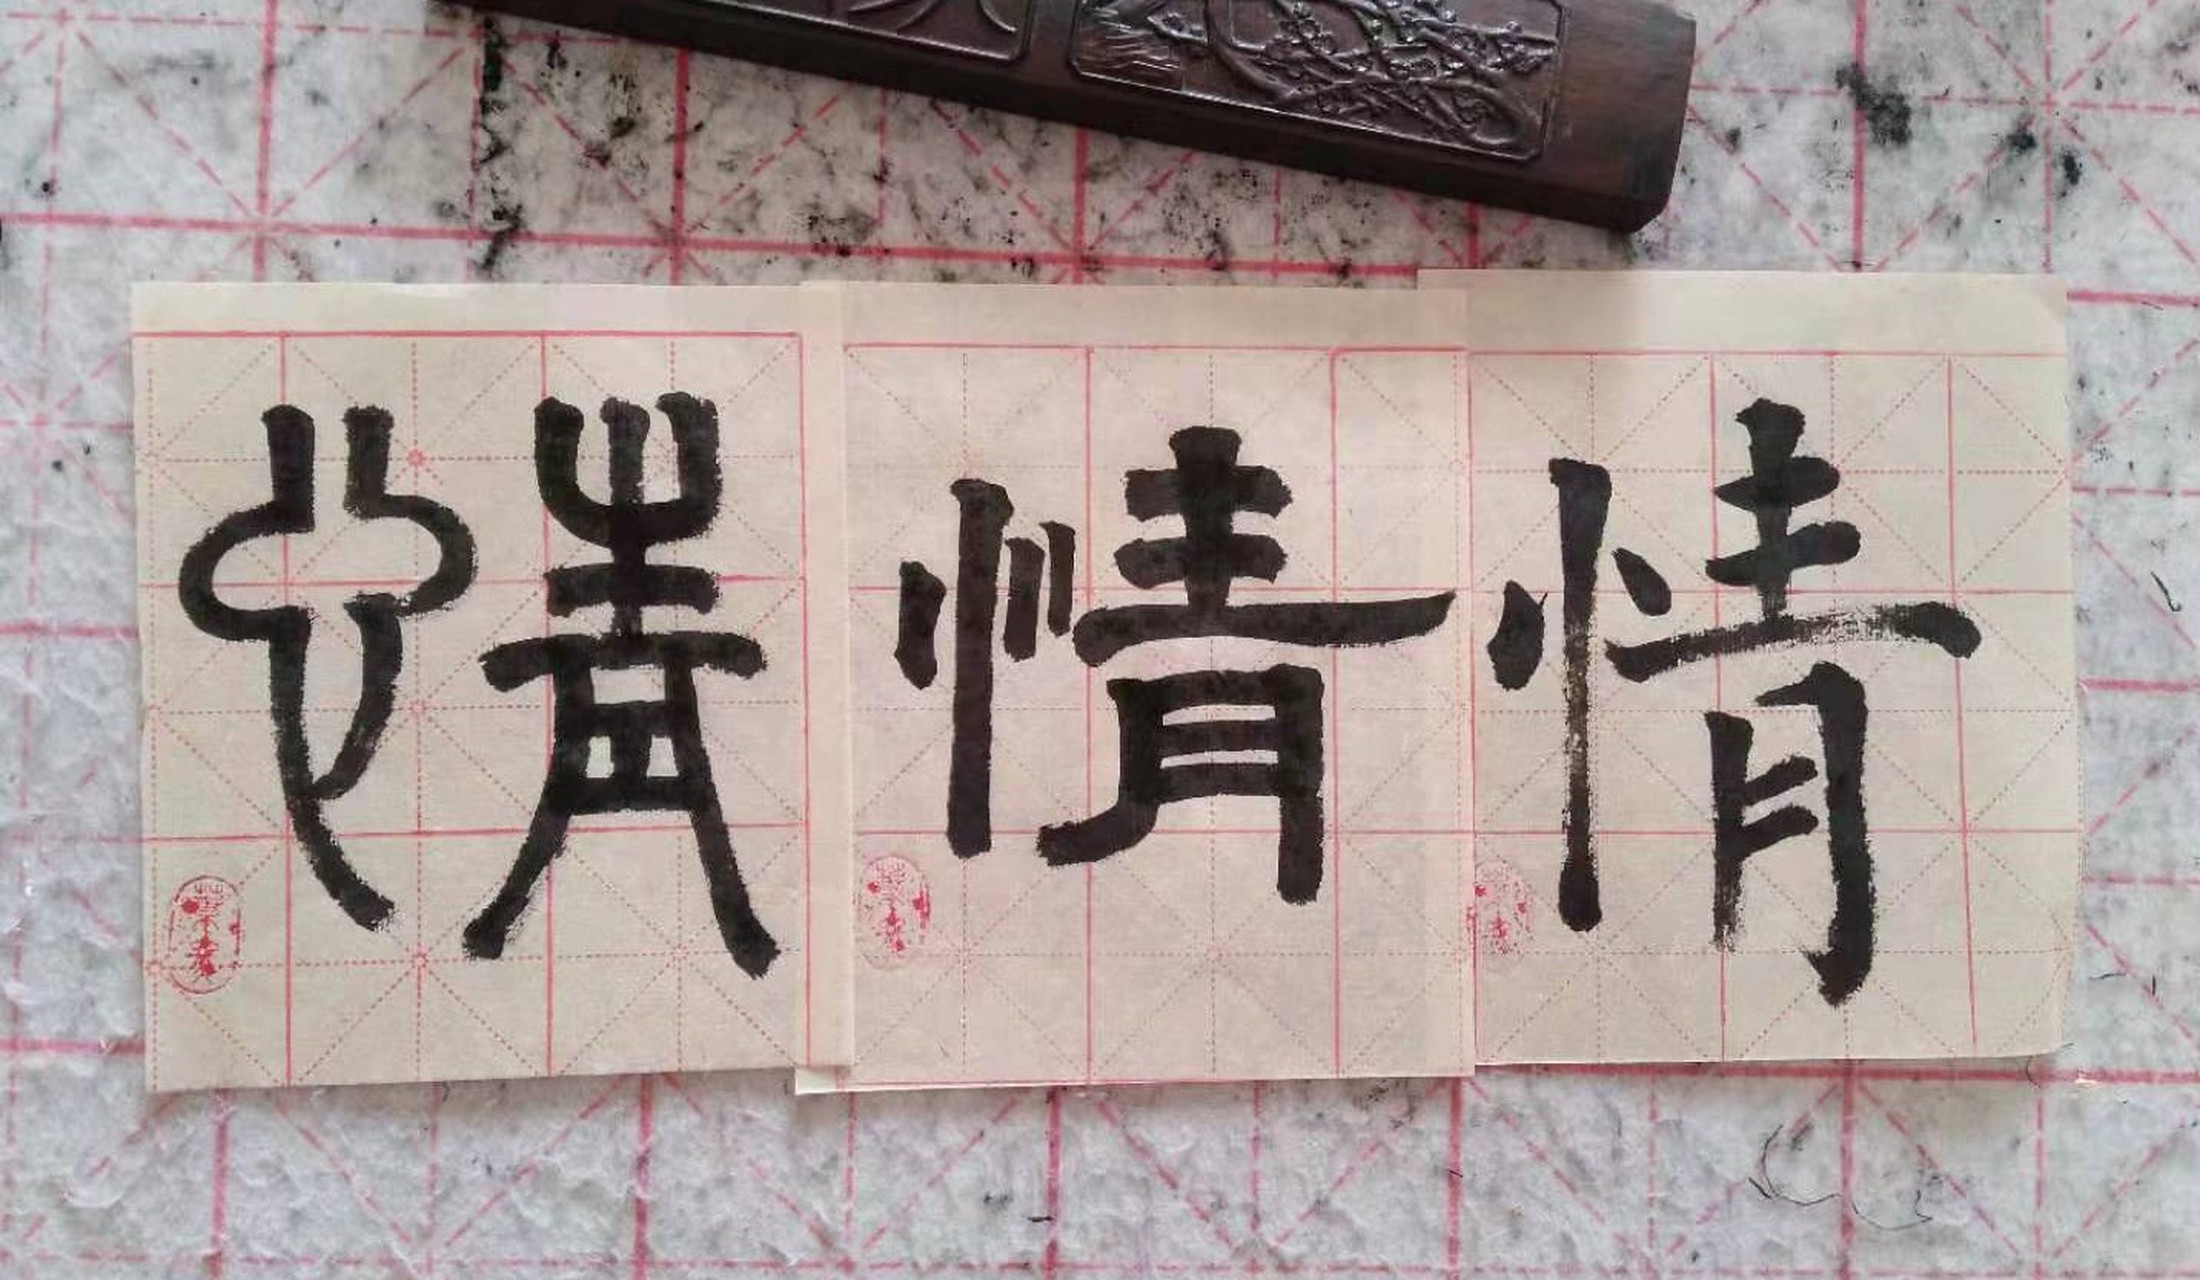 情情情